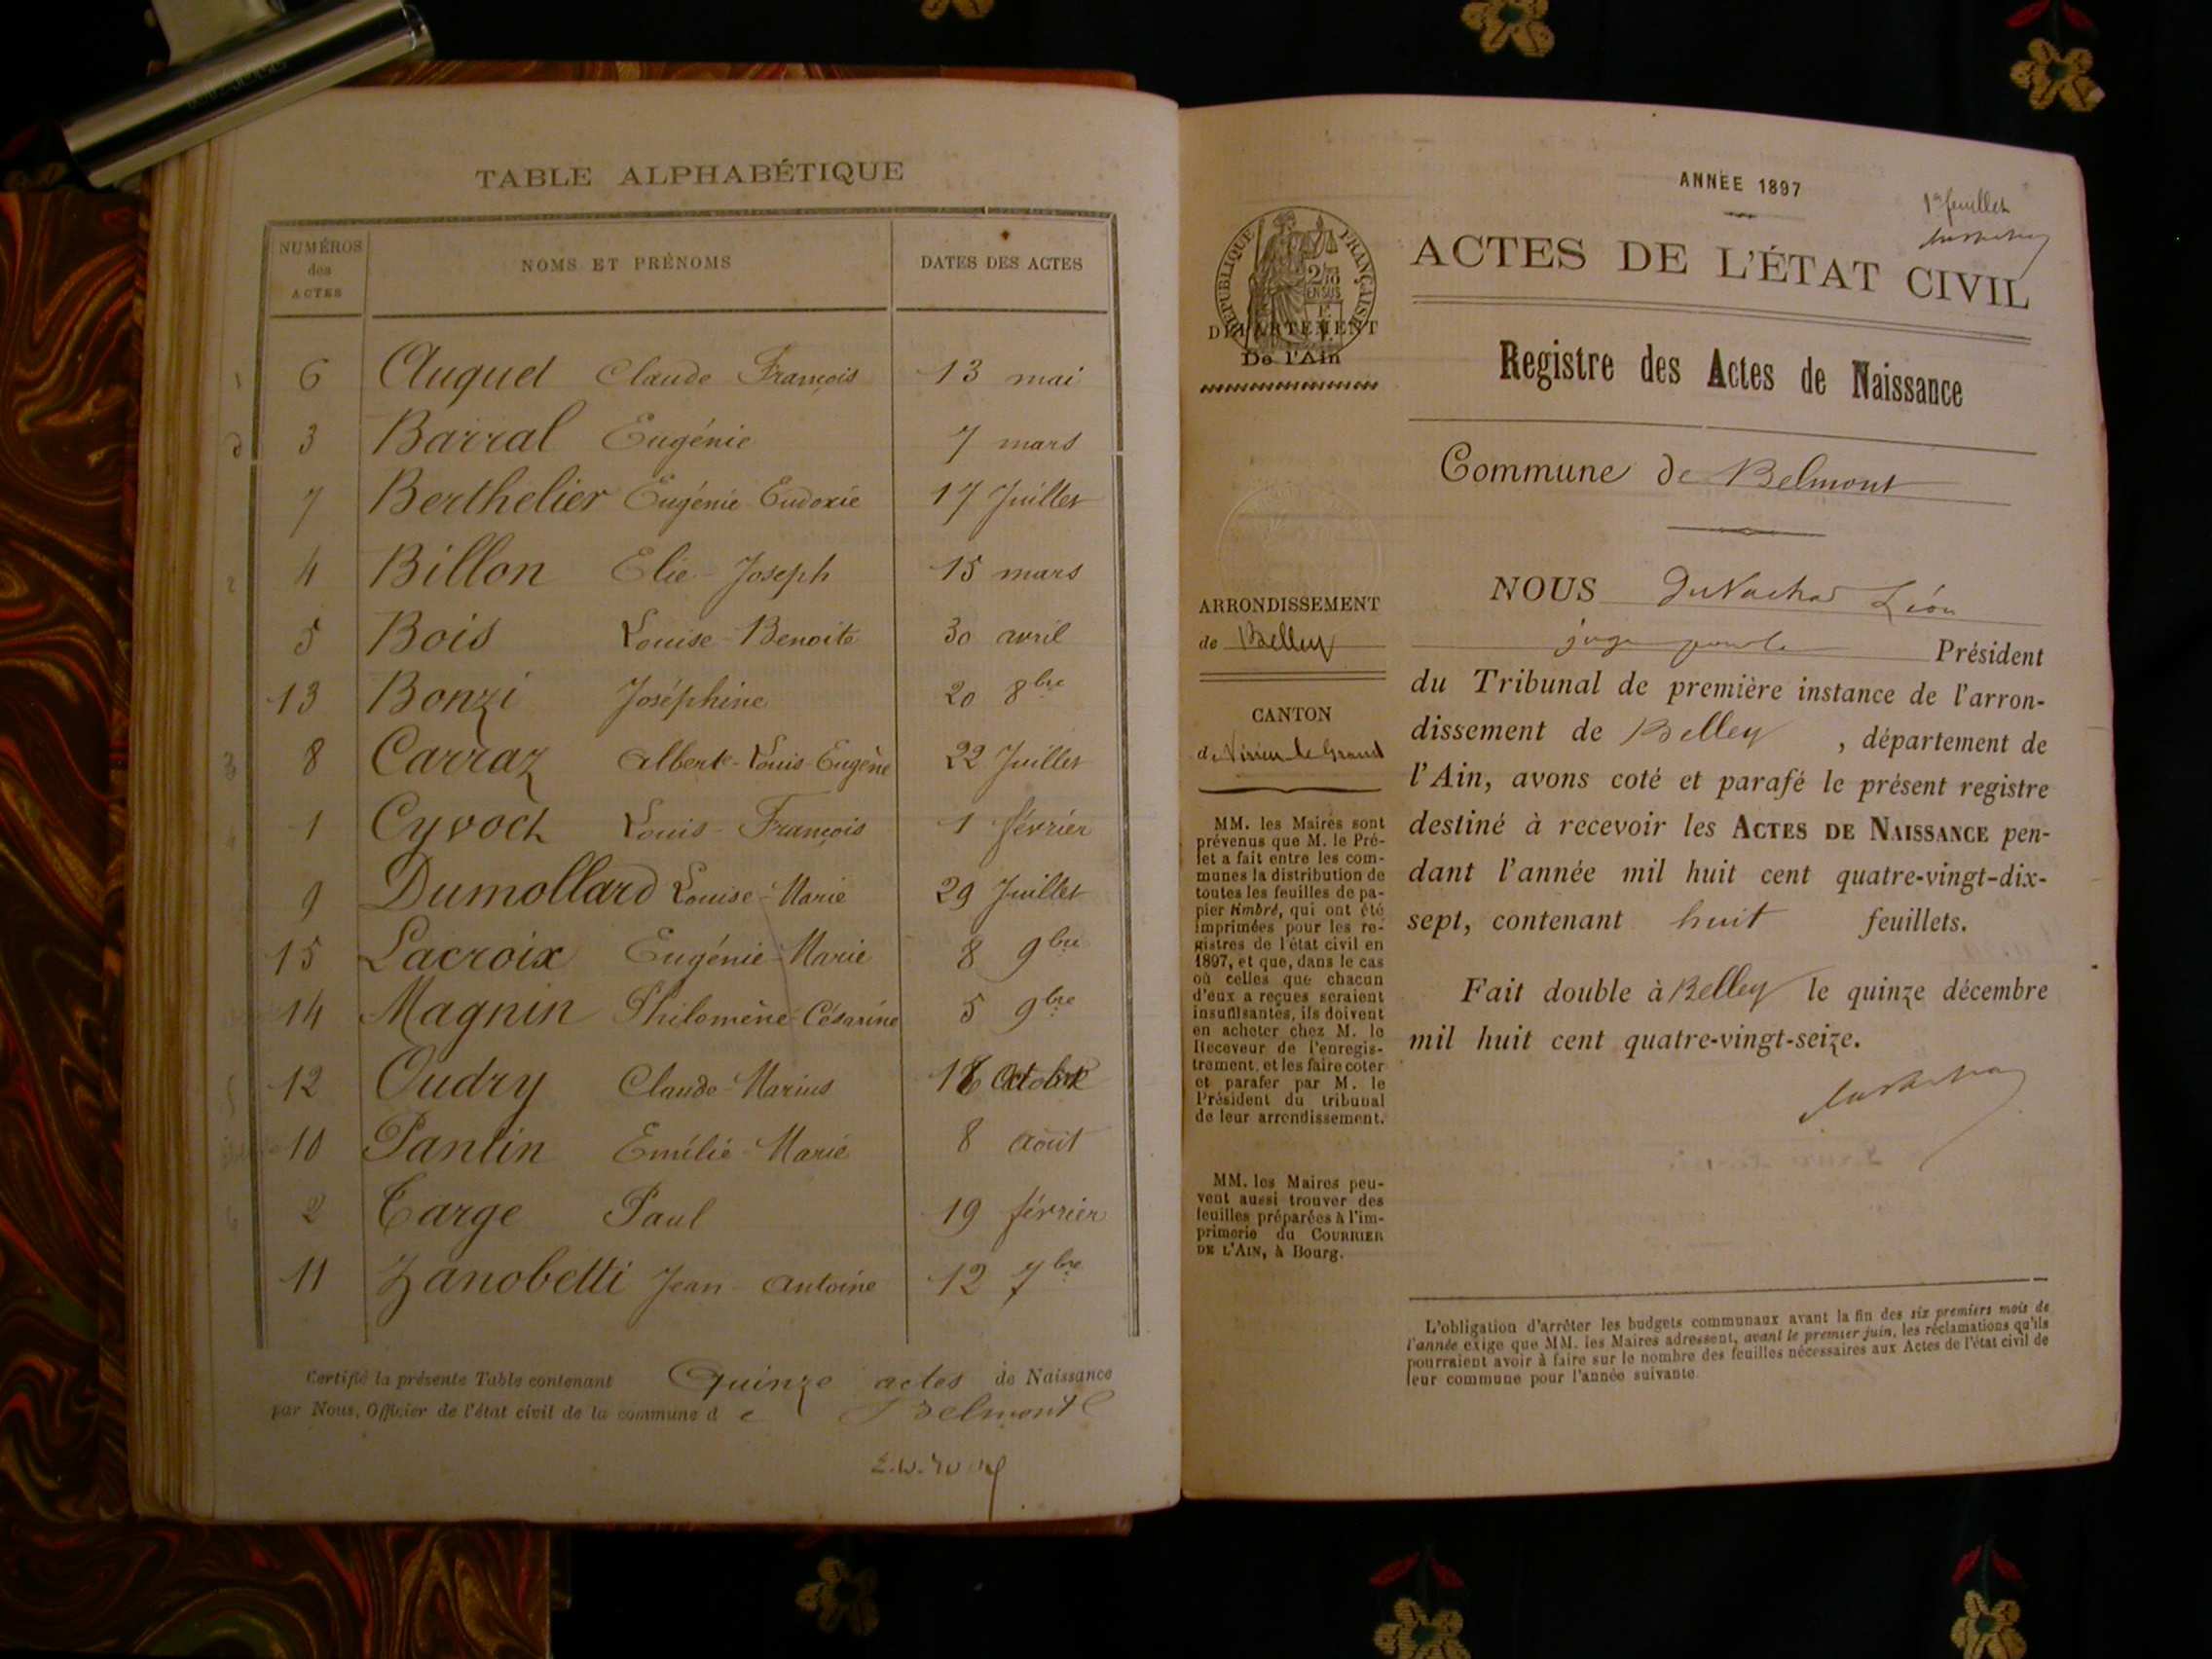 TABLE ALPHABÉTIQUE
NUMÉROS des ACTES NOMS ET PRÉNOMS DATES DES ACTES
6 Auquet Claude François 13 mai
3 Barral Eugénie 7 mars
7 Berthelier Eugénie Eudoxie 17 Juillet
4 Billon Elie-Joseph 15 mars
5 Bois Louise-Benoite 30 avril
13 Bonzi Joséphine 20 8bre
8 Carraz Albert-Louis-Eugène 22 Juillet
1 Cyvoct Louis-François 1 février
9 Dumollard Louise-Marie 29 Juillet
15 Lacroix Eugénie-Marie 8 9bre
14 Magnin Philomène-Césarine 5 9bre
12 Oudry Claude-Marius Octobre
10 Pantin Emélie-Marie 8 août
2 Targe Paul 19 février
11 Zanobetti Jean-Antoine 12 7bre
Certifié la présente Table contenant Quinze actes de Naissance
par Nous, Officier de l'état civil de la commune de Belmont
ANNÉE 1897
1er feuillet
ACTES DE L'ÉTAT CIVIL
RÉPUBLIQUE FRANÇAISE
DÉPARTEMENT
De l'Ain
Registre des Actes de Naissance
Commune de Belmont
ARRONDISSEMENT
de Belley
CANTON
de Virieu-le-Grand
MM. les Maires sont
prévenus que M. le Pré-
fet a fait entre les com-
munes la distribution de
toutes les feuilles de pa-
pier timbré, qui ont été
imprimées pour les re-
gistres de l'état civil en
1897, et que, dans le cas
où celles que chacun
d'eux a reçues seraient
insuffisantes, ils doivent
en acheter chez M. le
Receveur de l'enregis-
trement, et les faire coter
et parafer par M. le
Président du tribunal
de leur arrondissement.
MM. les Maires peu-
vent aussi trouver des
feuilles préparées à l'im-
primerie du COURRIER
DE L'AIN, à Bourg.
NOUS Léon
juge pour le Président
du Tribunal de première instance de l'arron-
dissement de Belley, département de
l'Ain, avons coté et parafé le présent registre
destiné à recevoir les ACTES DE NAISSANCE pen-
dant l'année mil huit cent quatre-vingt-dix-
sept, contenant huit feuillets.
Fait double à Belley le quinze décembre
mil huit cent quatre-vingt-seize.
L'obligation d'arrêter les budgets communaux avant la fin des six premiers mois de
l'année exige que MM. les Maires adressent, avant le premier juin, les réclamations qu'ils
pourraient avoir à faire sur le nombre des feuilles nécessaires aux Actes de l'état civil de
leur commune pour l'année suivante.